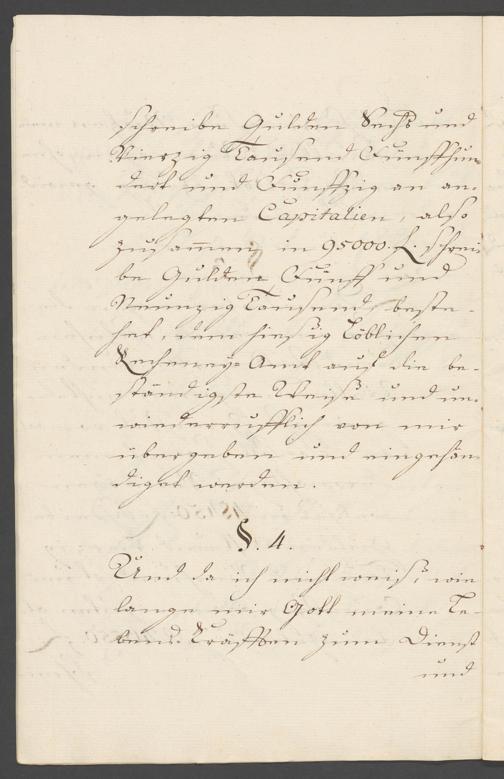 schreibe Gulden Sechs und
Vierzig Tausend Fünffhun-
dert und Funffzig an an-
gelegten Capitalien, also
zusammen in 95000. f. schrei-
be Gulden Fünff und
Neunzig Tausend beste-
het, dem hiesig Löblichen
Recheney-Amt auf die be-
ständigste Weise und un-
wiederrufflich von mir
übergeben und eingehän-
diget werden.
§. 4.
Und da ich nicht weiß, wie
lange mir Gott meine Le-
bens-Kräfften zum Dienst
und